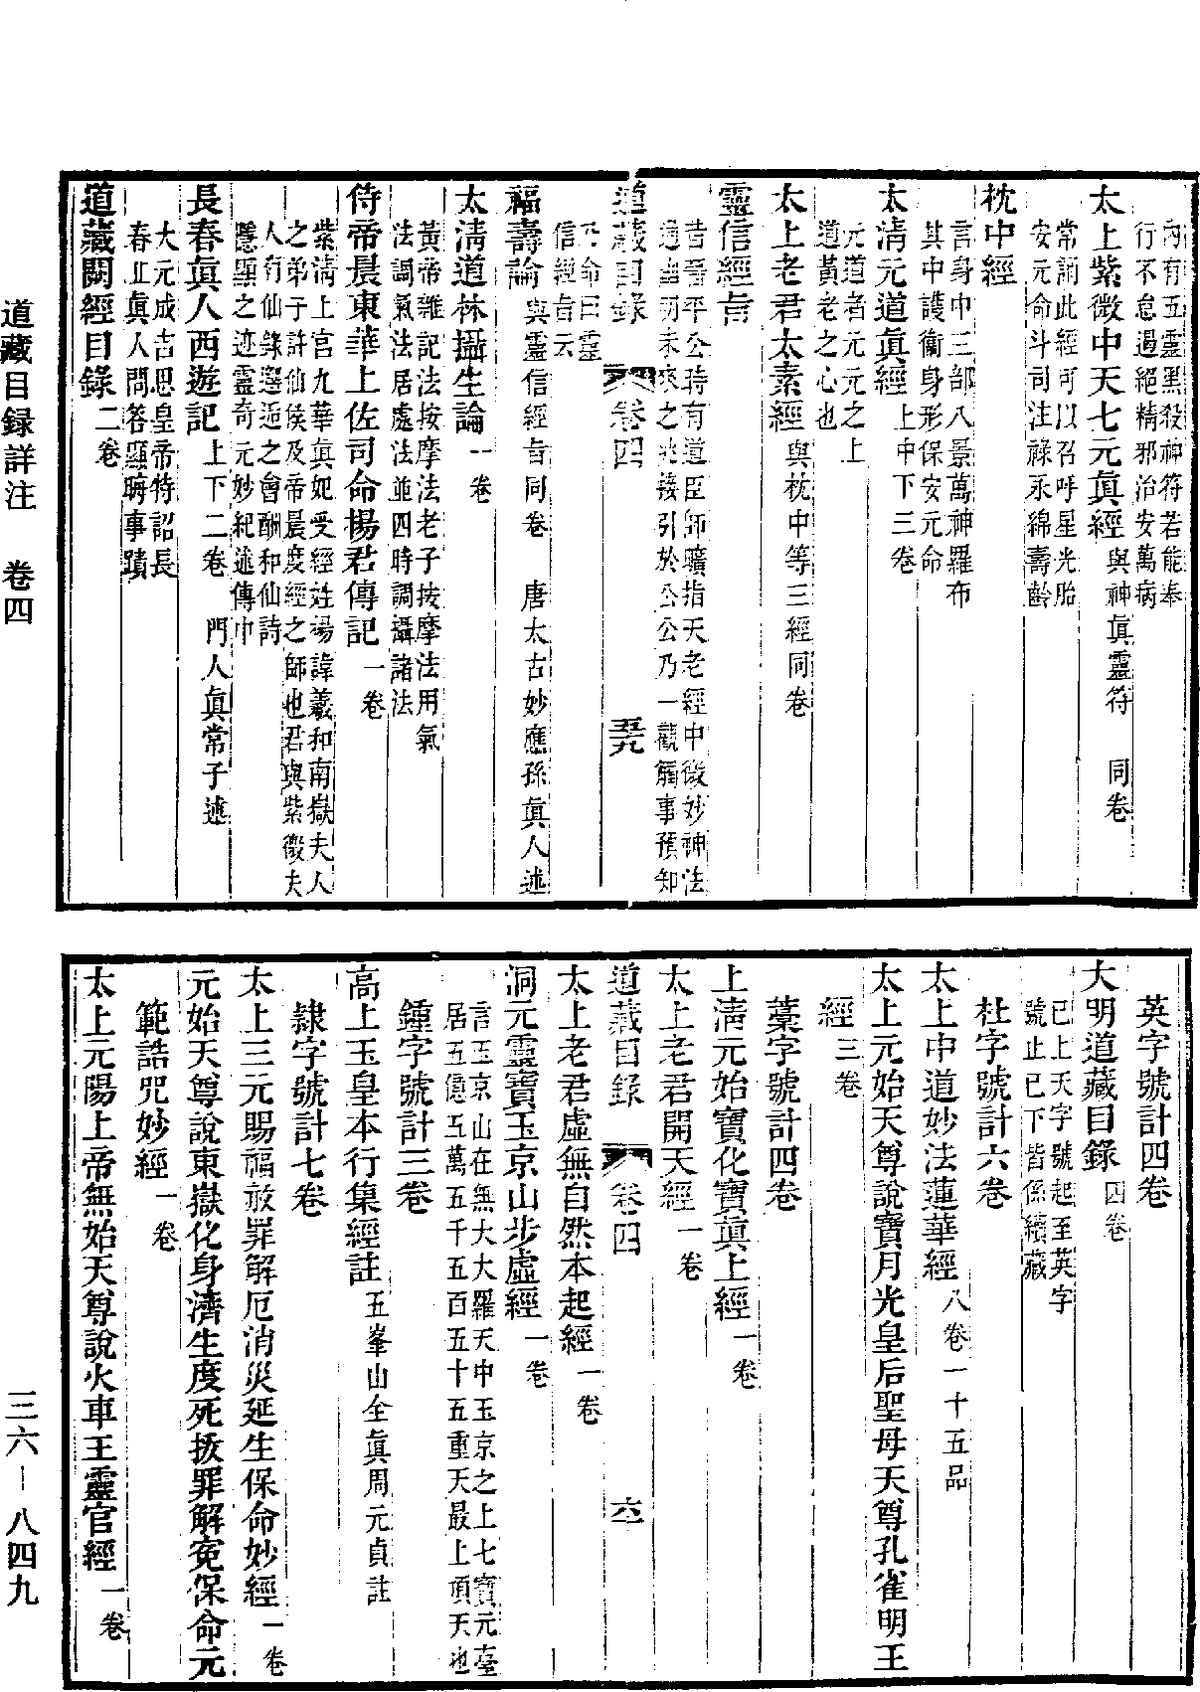 內有五靈黑殺神符若能奉
行不怠過絕精邪治安萬病
太上紫微中天七元眞經 與神眞靈符 同卷
常誦此經可以召呼星光胎
安元命斗司注祿永綿壽齡
枕中經
言身中三部八景萬神羅布
其中護衞身形保安元命
太淸元道眞經 上中下三卷
元道者元元之上
道黃老之心也
太上老君太素經 與枕中等三經同卷
靈信經旨
昔晉平公時有道臣師曠指天老經中微妙神法
通幽洞未來之兆接引於公公乃一觀觸事預知
道藏目錄 卷四 五九
乃命曰靈
信經旨云
福壽論 與靈信經旨同卷 唐太古妙應孫眞人述
太淸道林攝生論 一卷
黃帝雜記法按摩法老子按摩法用氣
法調氣法居處法並四時調攝諸法
侍帝晨東華上佐司命揚君傳記 一卷
紫淸上宮九華眞妃受經姓揚諱羲和南嶽夫人
之弟子許仙侯及帝晨度經之師也君與紫微夫
人有仙錄邂逅之會酬和仙詩
隱顯之迹靈奇元妙紀述傳中
長春眞人西遊記 上下二卷 門人眞常子述
大元成吉思皇帝特詔長
春丘眞人問答顯晦事蹟
道藏闕經目錄 二卷
英字號計四卷
大明道藏目錄 四卷
已上天字號起至英字
號止已下皆係續藏
杜字號計六卷
太上中道妙法蓮華經 八卷一十五品
太上元始天尊說寶月光皇后聖母天尊孔雀明王
經 三卷
藁字號計四卷
上淸元始寶化寶眞上經 一卷
太上老君開天經 一卷
道藏目錄 卷四 六十
太上老君虛無自然本起經 一卷
洞元靈寶玉京山步虛經 一卷
言玉京山在無大大羅天中玉京之上七寶元臺
居五億五萬五千五百五十五重天最上頂天也
鍾字號計三卷
高上玉皇本行集經註 五峯山全眞周元貞註
隸字號計七卷
太上三元賜福赦罪解厄消災延生保命妙經 一卷
元始天尊說東嶽化身濟生度死拔罪解寃保命元
範誥咒妙經 一卷
太上元陽上帝無始天尊說火車王靈官經 一卷
道藏目録詳注 卷四
三六－八四九